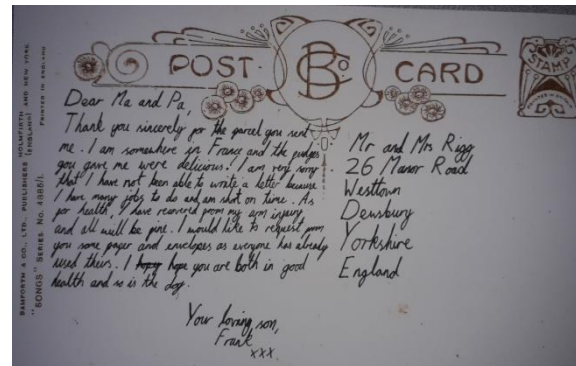 BAMFORTH & CO., LTD., PUBLISHERS HOLMFIRTH (ENGLAND) AND NEW YORK.
"SONGS" SERIES. No. 4885/1. PRINTED IN ENGLAND
POST BCo CARD
STAMP
Dear Ma and Pa,
Thank you sincerely for the parcel you sent
me. I am somewhere in France and the
you gave me were delicious. I am very sorry
that I have not been able to write a letter because
I have many jobs to do and am shot on time. As
for health, I have recovered from my arm injury
and all will be fine. I would like to request from
you some paper and envelopes as everyone has already
used theirs. I hope you are both in good
health and so is the dog.
Your loving son,
Frank
xxx
Mr and Mrs Rigg
26 Manor Road
Westtown
Dewsbury
Yorkshire
England